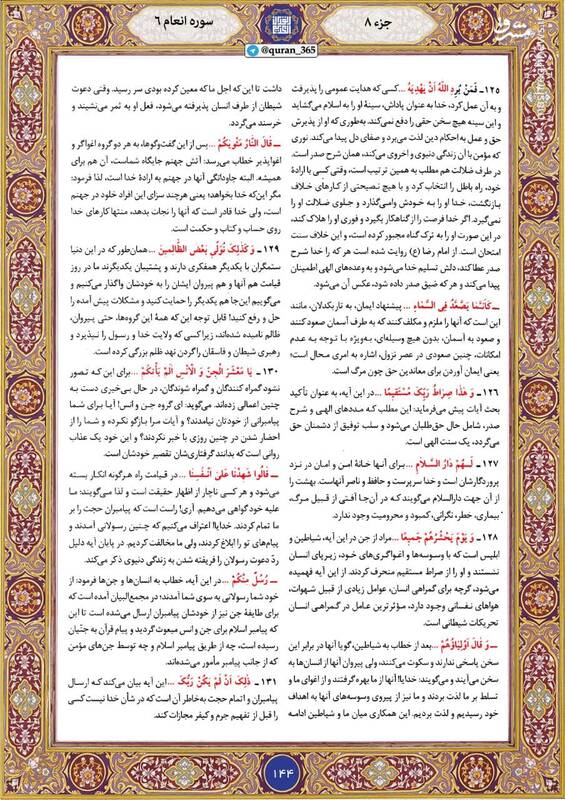 جزء ۸
سوره انعام ۶
@quran_365
مشرق
۱۲۵ـ فَمَنْ يُرِدِ اللّٰهُ أَنْ يَهْدِيَهُ ... کسی که هدایت عمومی را پذیرفت
و به آن عمل کرد، خدا به عنوان پاداش، سینهٔ او را به اسلام می‌گشاید
و این سینه هیچ سخن حقی را دفع نمی‌کند. به‌طوری که او از پذیرش
حق و عمل به احکام دین لذت می‌برد و صفای دل پیدا می‌کند. نوری
که مؤمن با آن زندگی دنیوی و اخروی می‌کند، همان شرح صدر است.
در طرف ضلالت هم مطلب به همین ترتیب است، وقتی کسی با ارادهٔ
خود، راه باطل را انتخاب کرد و با هیچ نصیحتی از کارهای خلاف
بازنگشت، خدا او را به خودش وامی‌گذارد و جلوی ضلالت او را
نمی‌گیرد. اگر خدا فرصت را از گناهکار بگیرد و فوری او را هلاک کند،
در این صورت او را به ترک گناه مجبور کرده است، و این خلاف سنت
امتحان است. از امام رضا (ع) روایت شده است هر که را خدا شرح
صدر عطا کند، دلش تسلیم خدا می‌شود و به وعده‌های الهی اطمینان
پیدا می‌کند و هر که ضیق صدر داده شود، عکس آن می‌شود.
ـ کَأَنَّمَا يَصَّعَّدُ فِي السَّمَاءِ ... پیشنهاد ایمان، به تاریکدلان، مانند
این است که آنها را ملزم و مکلف کنند که به طرف آسمان صعود کنند
و صعود به آسمان، بدون هیچ وسیله‌ای، به‌ویژه با توجه به عدم
امکانات، چنین صعودی در عصر نزول، اشاره به امری محال است؛
یعنی ایمان آوردن برای معاندین حق چون مرگ است.
۱۲۶ـ وَ هٰذَا صِرَاطُ رَبِّکَ مُسْتَقِيمًا ... در این آیه، به عنوان تأکید
بحث آیات پیش می‌فرماید: این مطلب که مددهای الهی و شرح
صدر، شامل حال حق‌طلبان می‌شود و سلب توفیق از دشمنان حق
می‌گردد، یک سنت الهی است.
۱۲۷ـ لَهُمْ دَارُ السَّلَامِ ... برای آنها خانهٔ امن و امان در نزد
پروردگارشان است و خدا سرپرست و حافظ و ناصر آنهاست. بهشت را
از آن جهت دارالسلام می‌گویند که در آن‌جا آفتی از قبیل مرگ،
بیماری، خطر، نگرانی، کمبود و محرومیت وجود ندارد.
۱۲۸ـ وَ يَوْمَ يَحْشُرُهُمْ جَمِيعًا ... مراد از جن در این آیه، شیاطین و
ابلیس است که با وسوسه‌ها و اغواگری‌های خود، زیرپای انسان
نشستند و او را از صراط مستقیم منحرف کردند. از این آیه فهمیده
می‌شود، گرچه برای گمراهی انسان، عوامل زیادی از قبیل شهوات،
هواهای نفسانی وجود دارد، مؤثرترین عامل در گمراهی انسان
تحریکات شیطانی است.
ـ وَ قَالَ أَوْلِيَاؤُهُمْ ... بعد از خطاب به شیاطین، گویا آنها در برابر این
سخن پاسخی ندارند و سکوت می‌کنند، ولی پیروان آنها از انسان‌ها به
سخن می‌آیند و می‌گویند: خدایا! آنها از ما بهره گرفتند و از اغوای ما و
تسلط بر ما لذت بردند و ما نیز از پیروی وسوسه‌های آنها به اهداف
خود رسیدیم و لذت بردیم. این همکاری میان ما و شیاطین ادامه
داشت تا این که اجل ما که معین کرده بودی سر رسید. وقتی دعوت
شیطان از طرف انسان پذیرفته می‌شود، فعل او به ثمر می‌نشیند و
خرسند می‌گردد.
ـ قَالَ النَّارُ مَثْوَاكُمْ ... پس از این گفت‌وگوها، به هر دو گروه اغواگر و
اغواپذیر خطاب می‌رسد: آتش جهنم جایگاه شماست، آن هم برای
همیشه. البته جاودانگی آنها در جهنم به ارادهٔ خدا است، لذا فرمود:
مگر این‌که خدا بخواهد؛ یعنی هرچند سزای این افراد خلود در جهنم
است، ولی خدا قادر است که آنها را نجات بدهد، منتها کارهای خدا
روی حساب و کتاب و حکمت است.
۱۲۹ـ وَ کَذٰلِکَ نُوَلِّي بَعْضَ الظَّالِمِينَ ... همان‌طور که در این دنیا
ستمگران با یکدیگر همفکری دارند و پشتیبان یکدیگرند ما در روز
قیامت هم آنها و هم پیروان ایشان را به خودشان واگذار می‌کنیم و
می‌گوییم این‌جا هم یکدیگر را حمایت کنید و مشکلات پیش آمده را
حل و رفع کنید! قابل توجه این که همهٔ این گروه‌ها، حتی پیروان،
ظالم نامیده شده‌اند، زیرا کسی که ولایت خدا و رسول را نپذیرد و
رهبری شیطان و فاسقان را گردن نهد ظلم بزرگی کرده است.
۱۳۰ـ يَا مَعْشَرَ الْجِنِّ وَ الْأِنْسِ أَلَمْ يَأْتِكُمْ ... برای این که تصور
نشود گمراه کنندگان و گمراه شوندگان، در حال بی‌خبری دست به
چنین اعمالی زده‌اند. می‌گوید: ای گروه جن و انس! آیا برای شما
پیامبرانی از خودتان نیامدند؟ و آیات مرا بازگو نکرده و شما را از
احضار شدن در چنین روزی با خبر نکردند؟ و این خود یک عذاب
روانی است که بدانند گرفتاری‌شان تقصیر خودشان است.
ـ قَالُوا شَهِدْنَا عَلَىٰ أَنْفُسِنَا ... در قیامت راه هرگونه انکار بسته
می‌شود و هر کسی ناچار از اظهار حقیقت است و لذا می‌گویند: ما
علیه خود گواهی می‌دهیم. آری! راست است که پیامبران حجت را بر
ما تمام کردند. خدایا! اعتراف می‌کنیم که چنین رسولانی آمدند و
پیام‌های تو را ابلاغ کردند، ولی ما مخالفت کردیم. در پایان آیه دلیل
ردّ دعوت رسولان را فریفته شدن به زندگی دنیوی ذکر می‌کند.
ـ رُسُلٌ مِنْكُمْ ... در این آیه، خطاب به انسان‌ها و جن‌ها فرمود: از
خود شما رسولانی به سوی شما آمدند؛ در مجمع‌البیان آمده است که
برای طایفهٔ جن نیز از خودشان پیامبران ارسال می‌شده است تا این
که پیامبر اسلام برای جن و انس مبعوث گردید و پیام قرآن به جنّیان
رسیده است، چه از طریق پیامبر اسلام و چه توسط جن‌های مؤمن
که از جانب پیامبر مأمور می‌شده‌اند.
۱۳۱ـ ذٰلِکَ أَنْ لَمْ يَكُنْ رَبُّکَ ... این آیه بیان می‌کند که ارسال
پیامبران و اتمام حجت به‌خاطر آن است که در شأن خدا نیست کسی
را قبل از تفهیم جرم و کیفر مجازات کند.
۱۴۴